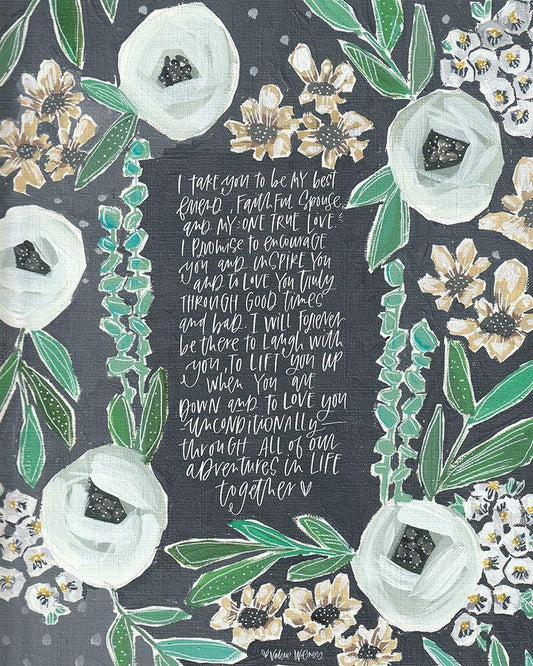 I TAKE YOU TO BE MY BEST
friend, FAITHFUL SPOUSE,
and MY ONE TRUE LOVE.
I PROMISE TO ENCOURAGE
you and INSPIRE YOU
and TO LOVE YOU TRULY
THROUGH GOOD TIMES
and bad. I WILL FOREVER
be THERE TO LAUGH WITH
you, TO LIFT YOU UP
when YOU ARE
DOWN and TO LOVE YOU
UNCONDITIONALLY—
through ALL of our
adventures in LIFE
together ♡
♡ Valerie